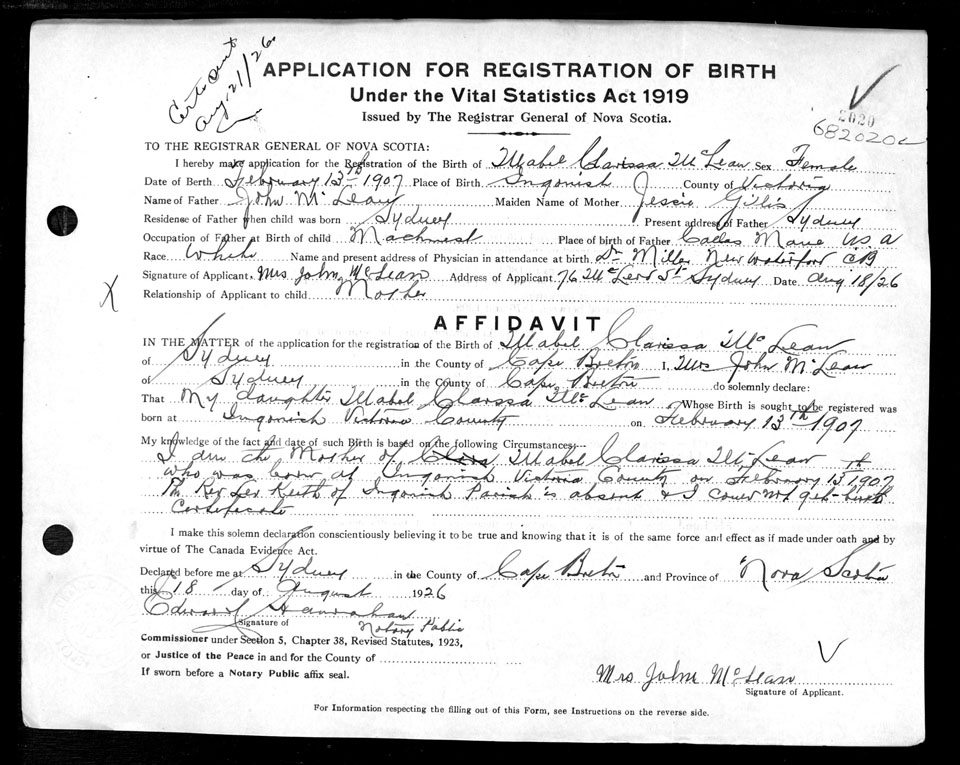 Certs sent
Aug. 21/26.
APPLICATION FOR REGISTRATION OF BIRTH
Under the Vital Statistics Act 1919
Issued by The Registrar General of Nova Scotia.
2020
682020
TO THE REGISTRAR GENERAL OF NOVA SCOTIA:
I hereby make application for the Registration of the Birth of Mabel Clarissa McLean Sex Female
Date of Berth February 13th 1907 Place of Birth Ingonish County of Victoria
Name of Father John McLean Maiden Name of Mother Jessie Gillis
Residense of Father when child was born Sydney Present address of Father Sydney
Occupation of Father at Birth of child Machinest Place of birth of Father Calles Maine USA
Race White Name and present address of Physician in attendance at birth. Dr Miller New Waterford CB
Signature of Applicant, Mrs. John McLean Address of Applicant 76 McLeod St Sydney Date Aug 18/26
Relationship of Applicant to child Mother
AFFIDAVIT
IN THE MATTER of the application for the registration of the Birth of Mabel Clarissa McLean
of Sydney in the County of Cape Breton I, Mrs John McLean
of Sydney in the County of Cape Breton do solemnly declare:
That My daughter Mabel Clarissa McLean Whose Birth is sought to be registered was
born at Ingonish Victoria County on February 13th 1907
My knowledge of the fact and date of such Birth is based on the following Circumstances:—
I am the Mother of Mabel Clarissa McLean
who was born at Ingonish Victoria County on February 13th 1907
The Rev Keith of Ingonish Parish is absent & I could not get birth
Certificate
I make this solemn declaration conscientiously believing it to be true and knowing that it is of the same force and effect as if made under oath and by
virtue of The Canada Evidence Act.
Declared before me at Sydney in the County of Cape Breton and Province of Nova Scotia
this 18 day of August 1926
Edward Hanrahan
Signature of Notary Public
Commissioner under Section 5, Chapter 38, Revised Statutes, 1923,
or Justice of the Peace in and for the County of
If sworn before a Notary Public affix seal.
Mrs John McLean
Signature of Applicant.
For Information respecting the filling out of this Form, see Instructions on the reverse side.